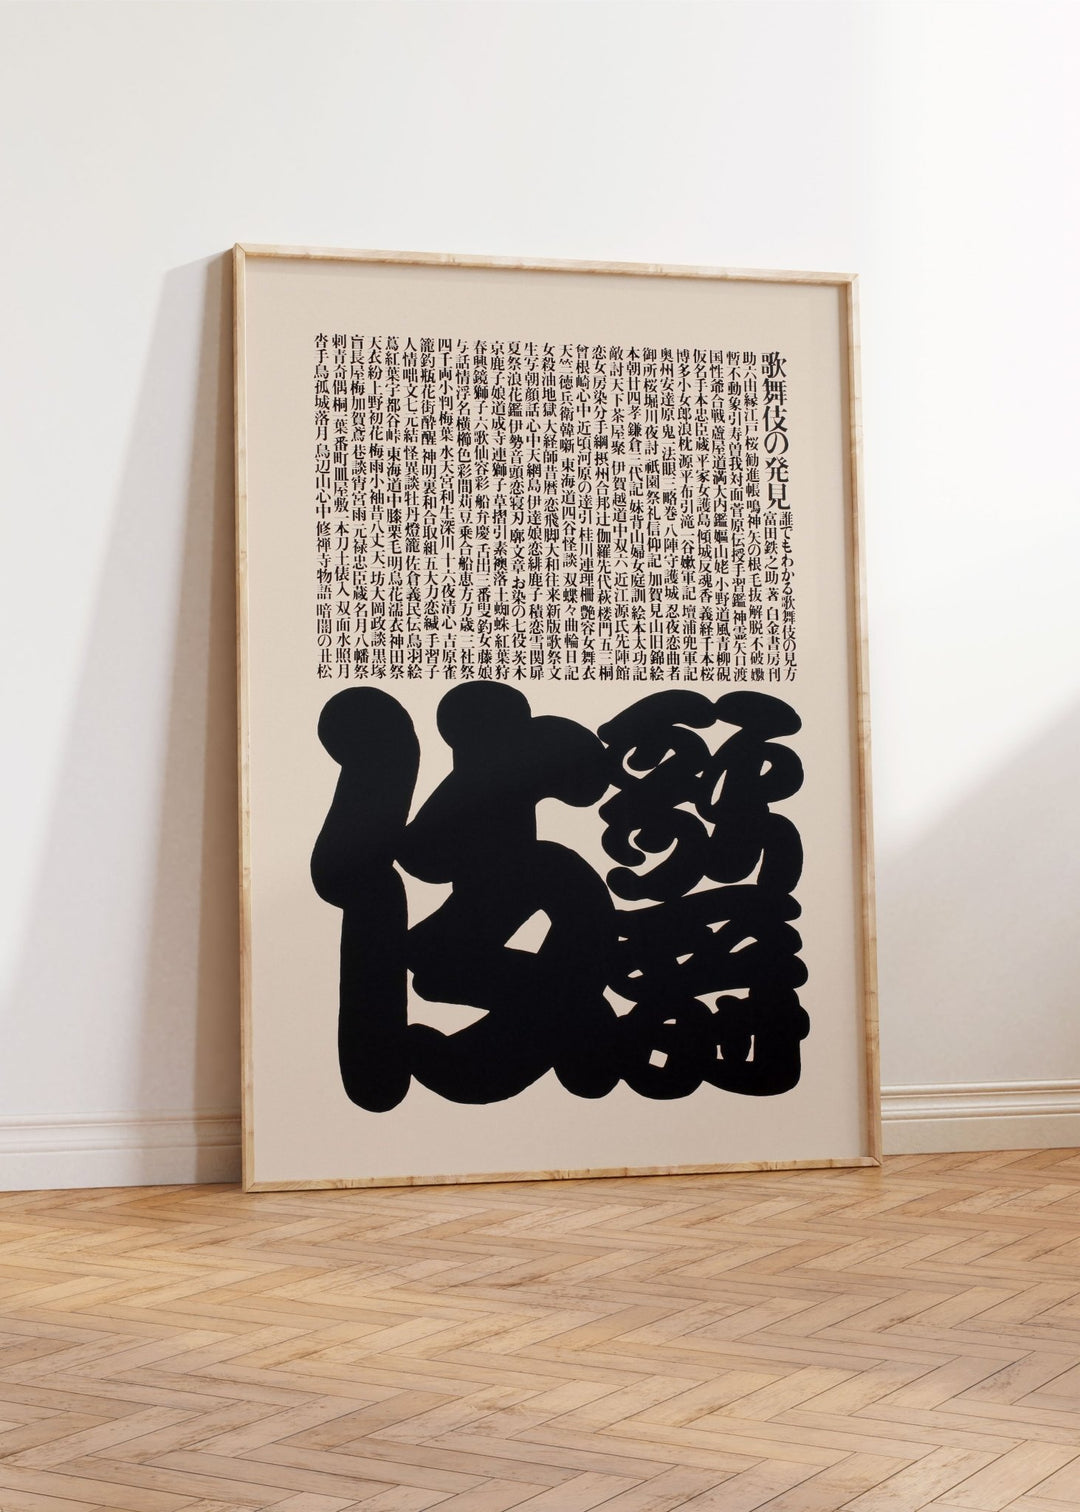 歌舞伎の発見
誰でもわかる歌舞伎の見方
富田鉄之助著 白金書房刊
助六由縁江戸桜 勧進帳 鳴神 矢の根 毛抜 解脱 不破 嫐
暫 不動 象引 寿曽我対面 菅原伝授手習鑑 神霊矢口渡
国性爺合戦 蘆屋道満大内鑑 嫗山姥 小野道風青柳硯
仮名手本忠臣蔵 平家女護島 傾城反魂香 義経千本桜
博多小女郎浪枕 源平布引滝 一谷嫩軍記 壇浦兜軍記
奥州安達原 鬼一法眼三略巻 八陣守護城 忍夜恋曲者
御所桜堀川夜討 祇園祭礼信仰記 加賀見山旧錦絵
本朝廿四孝 鎌倉三代記 妹背山婦女庭訓 絵本太功記
敵討天下茶屋聚 伊賀越道中双六 近江源氏先陣館
恋女房染分手綱 摂州合邦辻 伽羅先代萩 楼門五三桐
曾根崎心中 近頃河原の達引 桂川連理柵 艶容女舞衣
天竺徳兵衛韓噺 東海道四谷怪談 双蝶々曲輪日記
女殺油地獄 大経師昔暦 恋飛脚大和往来 新版歌祭文
生写朝顔話 心中天網島 伊達娘恋緋鹿子 積恋雪関扉
夏祭浪花鑑 伊勢音頭恋寝刃 廓文章 お染の七役 茨木
京鹿子娘道成寺 連獅子 草摺引 素襖落 土蜘蛛 紅葉狩
春興鏡獅子 六歌仙容彩 船弁慶 舌出三番叟 釣女 藤娘
与話情浮名横櫛 色彩間苅豆 乗合船恵方万歳 三社祭
四千両小判梅葉 水天宮利生深川 十六夜清心 吉原雀
籠釣瓶花街酔醒 神明恵和合取組 五大力恋緘 手習子
人情噺文七元結 怪異談牡丹燈籠 佐倉義民伝 鳥羽絵
蔦紅葉宇都谷峠 東海道中膝栗毛 明烏花濡衣 神田祭
天衣紛上野初花 梅雨小袖昔八丈 天一坊大岡政談 黒塚
盲長屋梅加賀鳶 巷談宵宮雨 元禄忠臣蔵 名月八幡祭
刺青奇偶 桐一葉 番町皿屋敷 一本刀土俵入 双面水照月
沓手鳥孤城落月 鳥辺山心中 修禅寺物語 暗闇の丑松
歌舞伎